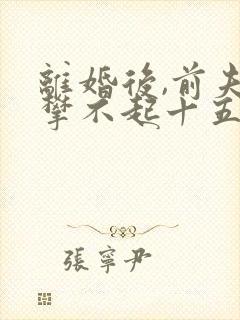 離婚後,前夫
攀不起十五
張寧尹